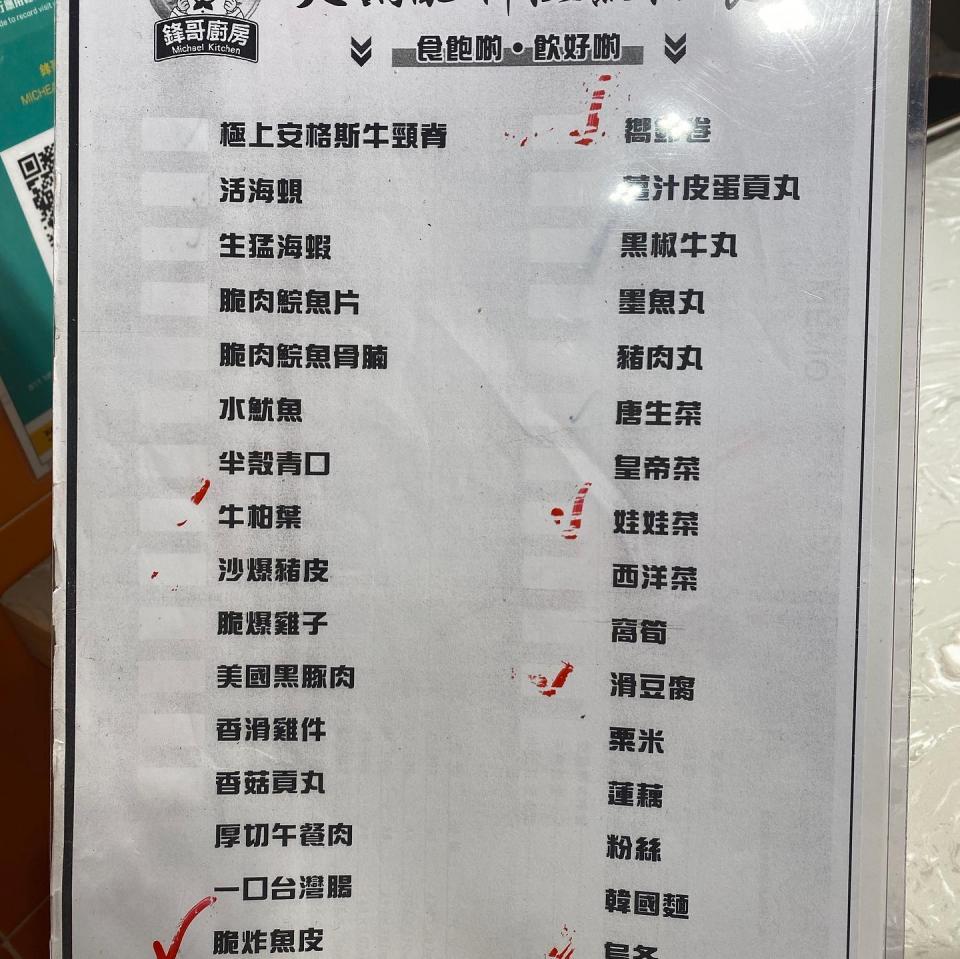 鋒哥廚房
Michael Kitchen
食飽啲・飲好啲
極上安格斯牛頸脊
活海蜆
生猛海蝦
脆肉鯇魚片
脆肉鯇魚骨腩
水魷魚
半殼青口
牛柏葉
沙爆豬皮
脆爆雞子
美國黑豚肉
香滑雞件
香菇貢丸
厚切午餐肉
一口台灣腸
脆炸魚皮
響鈴卷
薑汁皮蛋貢丸
黑椒牛丸
墨魚丸
豬肉丸
唐生菜
皇帝菜
娃娃菜
西洋菜
窩筍
滑豆腐
粟米
蓮藕
粉絲
韓國麵
烏冬